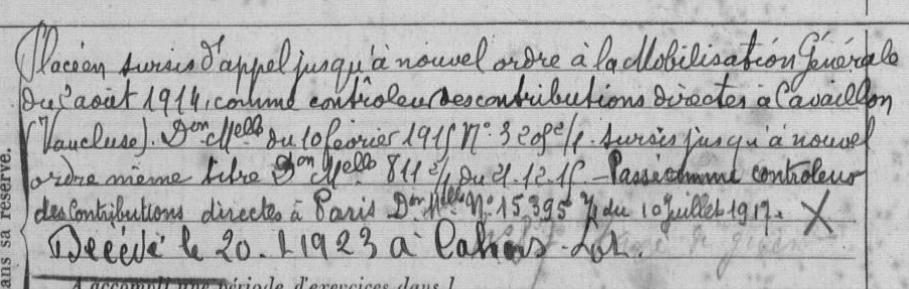 Placé en sursis d'appel jusqu'à nouvel ordre à la Mobilisation Générale
du 2 août 1914, comme contrôleur des contributions directes à Cavaillon
(Vaucluse). Don Melle du 10 février 1915 N° 3 sursis jusqu'à nouvel
ordre même titre Don Melle 811 du 21.12.15 - Passé comme contrôleur
des Contributions directes à Paris Don Melle N° 15.395 du 10 juillet 1917. X
Décédé le 20.1 1923 à Cahors - Lot.
ans sa réserve.
A accompli une période d'exercices dans l